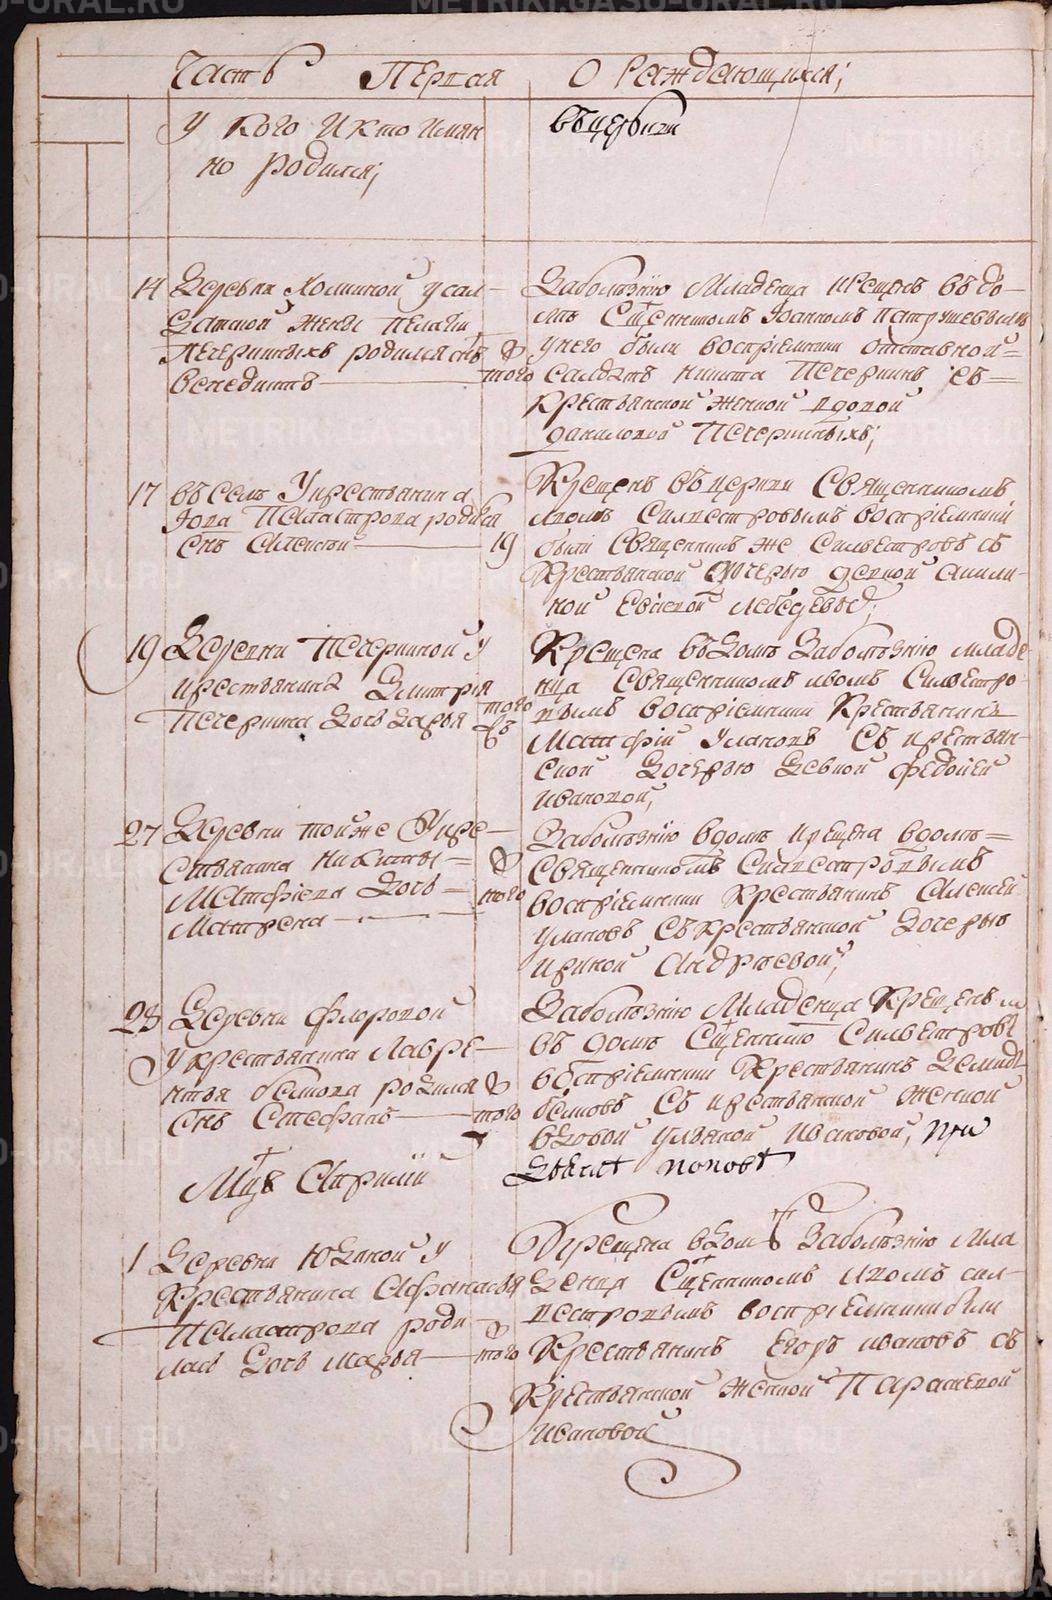 Часть Первая О Раждающихся;
У кого и кто имян
но родился;
въ церькви
14 Деревни Холкиной у сал
датской жены Пелагии
Печериныхъ родился снъ
Венедиктъ
того
За болѣзнію младенца крещенъ въ до
мѣ Сщенникомъ Iоанномъ Патрушевымъ
у него были воспріемники отставной
салдатъ Никита Печеринъ съ
крестьянской женкой вдовой
Даниловой Печериныхъ;
17 въ селѣ У крестьянина
Iова Паластрова родился
снъ Алексей 19
Крещенъ въ церкви Священникомъ
Львомъ Силвестровымъ воспріемники
были Священникъ же Сильвестровъ съ
Крестьянской дочерью девкой Акили
ной Лебедевыхъ;
19 Деревни Печеркиной у
крестьянина Дмитрія
Печеркина дочь Дарья
того
Крещена въ домѣ За болѣзнію младе
нца Священникомъ Львомъ Силвестро
вымъ воспріемники Крестьянинъ
Матфiй Улановъ Съ крестьян
ской Дочерью Девкой Федосьей
Ивановой,
27 Деревни той же У кре
стьянина Никиты
Матфіева Дочь
Матрена
того
За болѣзнію в домѣ крещена в домѣ
Священникомъ Силвестровымъ
воспріемники Крестьянинъ Алексей
Улановъ Съ крестьянской Дочерью
Ириной Андрѣевой;
28 Деревни Флоровой
У крестьянина Лавре
нтья Бѣлкова родился
Снъ Стефанъ
того
За болѣзнію Младенца Крещенъ
въ домѣ Сщенникомъ Сильвестровы
воспріемники Крестьянинъ Демидъ
съ крестьянской женкой
вдовой Ульяной Ивановой, при
Дьячкѣ Поповѣ
Мцъ Априлій
1 Деревни Юдиной У
Крестьянина Афанасья
Паластрова роди
лась Дочь Марья
того
Крещена в домѣ За болѣзнію Мла
денца Сщенникомъ Львомъ Сил
вестровымъ воспріемники были
Крестьянинъ Егоръ Ивановъ съ
Крестьянской женкой Парасковой
Ивановой
METRIKI.GASO-URAL.RU